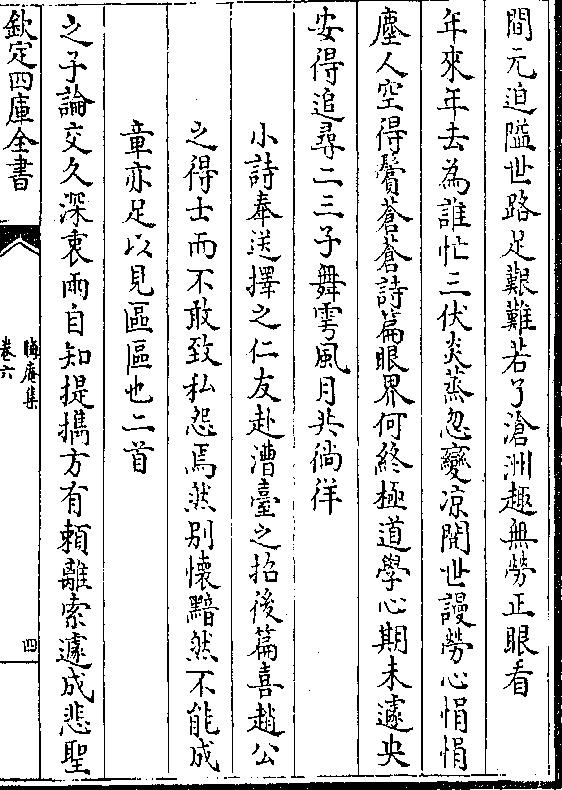 間元迫隘世路足艱難若了滄洲趣無勞正眼看
年來年去為誰忙三伏炎蒸忽變凉閱世謾勞心悁悁
塵人空得鬢蒼蒼詩篇眼界何終極道學心期未遽央
安得追尋二三子舞雩風月共徜徉
小詩奉送擇之仁友赴漕臺之招後篇喜趙公
之得士而不敢致私怨焉然别懷黯然不能成
章亦足以見區區也二首
之子論交久深衷兩自知提攜方有頼離索遽成悲聖
欽定四庫全書
晦庵集
卷六
四